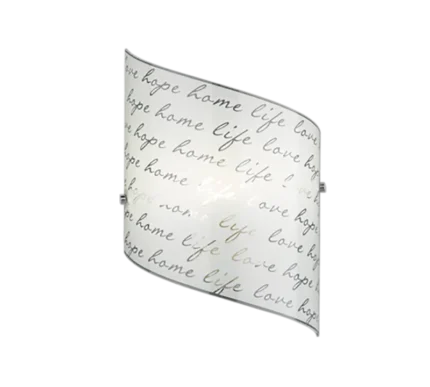 love hope home life love
hope home life love hope
love hope home life love
hope home life love hope
hope home life love hope
hope home life love hope
hope home life love hope